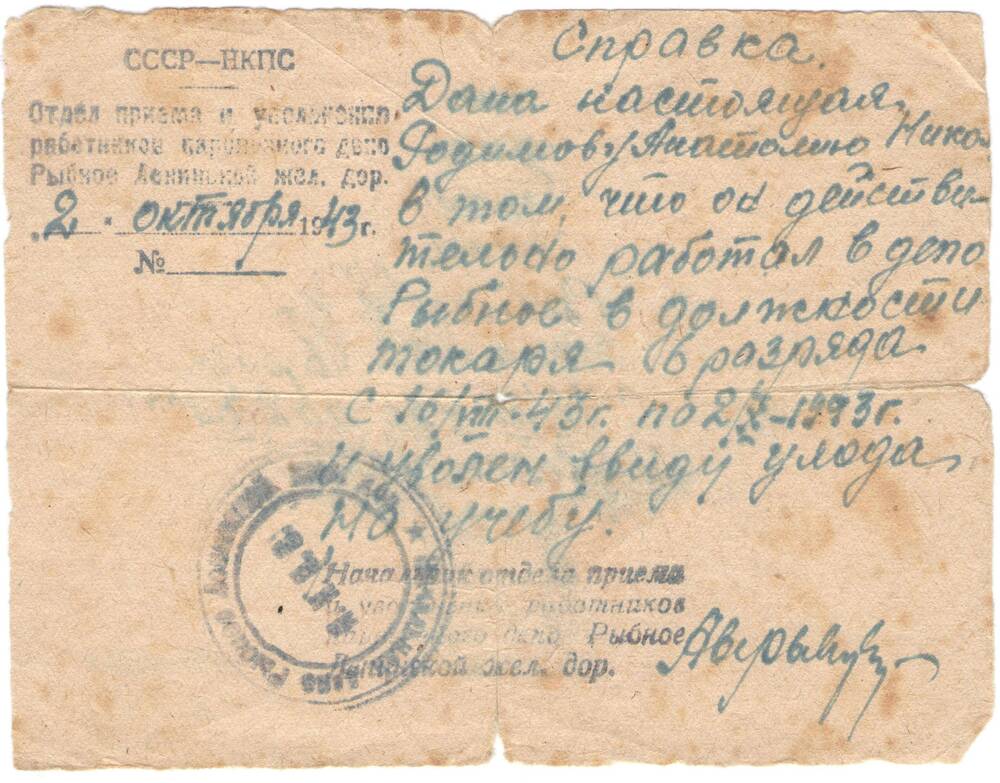 СССР—НКПС
Отдел приема и увольнения
работников паровозного депо
Рыбное Ленинской жел. дор.
„2 " октября 1943 г.
№
Справка.
Дана настоящая
Родимову Анатолию Нико
в том, что он действи-
тельно работал в депо
Рыбное в должности
токаря 6 разряда
с 16/III-43г. по 2/X-1943г.
и уволен ввиду ухода
на учебу.
Начальник отдела приема
и увольнения работников
паровозного депо Рыбное
Ленинской жел. дор.